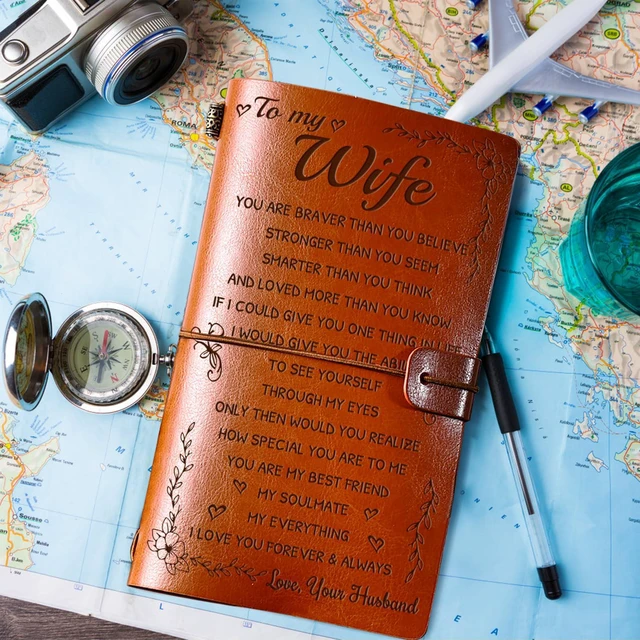 To my
Wife
YOU ARE BRAVER THAN YOU BELIEVE
STRONGER THAN YOU SEEM
SMARTER THAN YOU THINK
AND LOVED MORE THAN YOU KNOW
IF I COULD GIVE YOU ONE THING IN LIFE
I WOULD GIVE YOU THE
TO SEE YOURSELF
THROUGH MY EYES
ONLY THEN WOULD YOU REALIZE
HOW SPECIAL YOU ARE TO ME
YOU ARE MY BEST FRIEND
MY SOULMATE
MY EVERYTHING
I LOVE YOU FOREVER & ALWAYS
Love, Your Husband
ROMA
Sousse